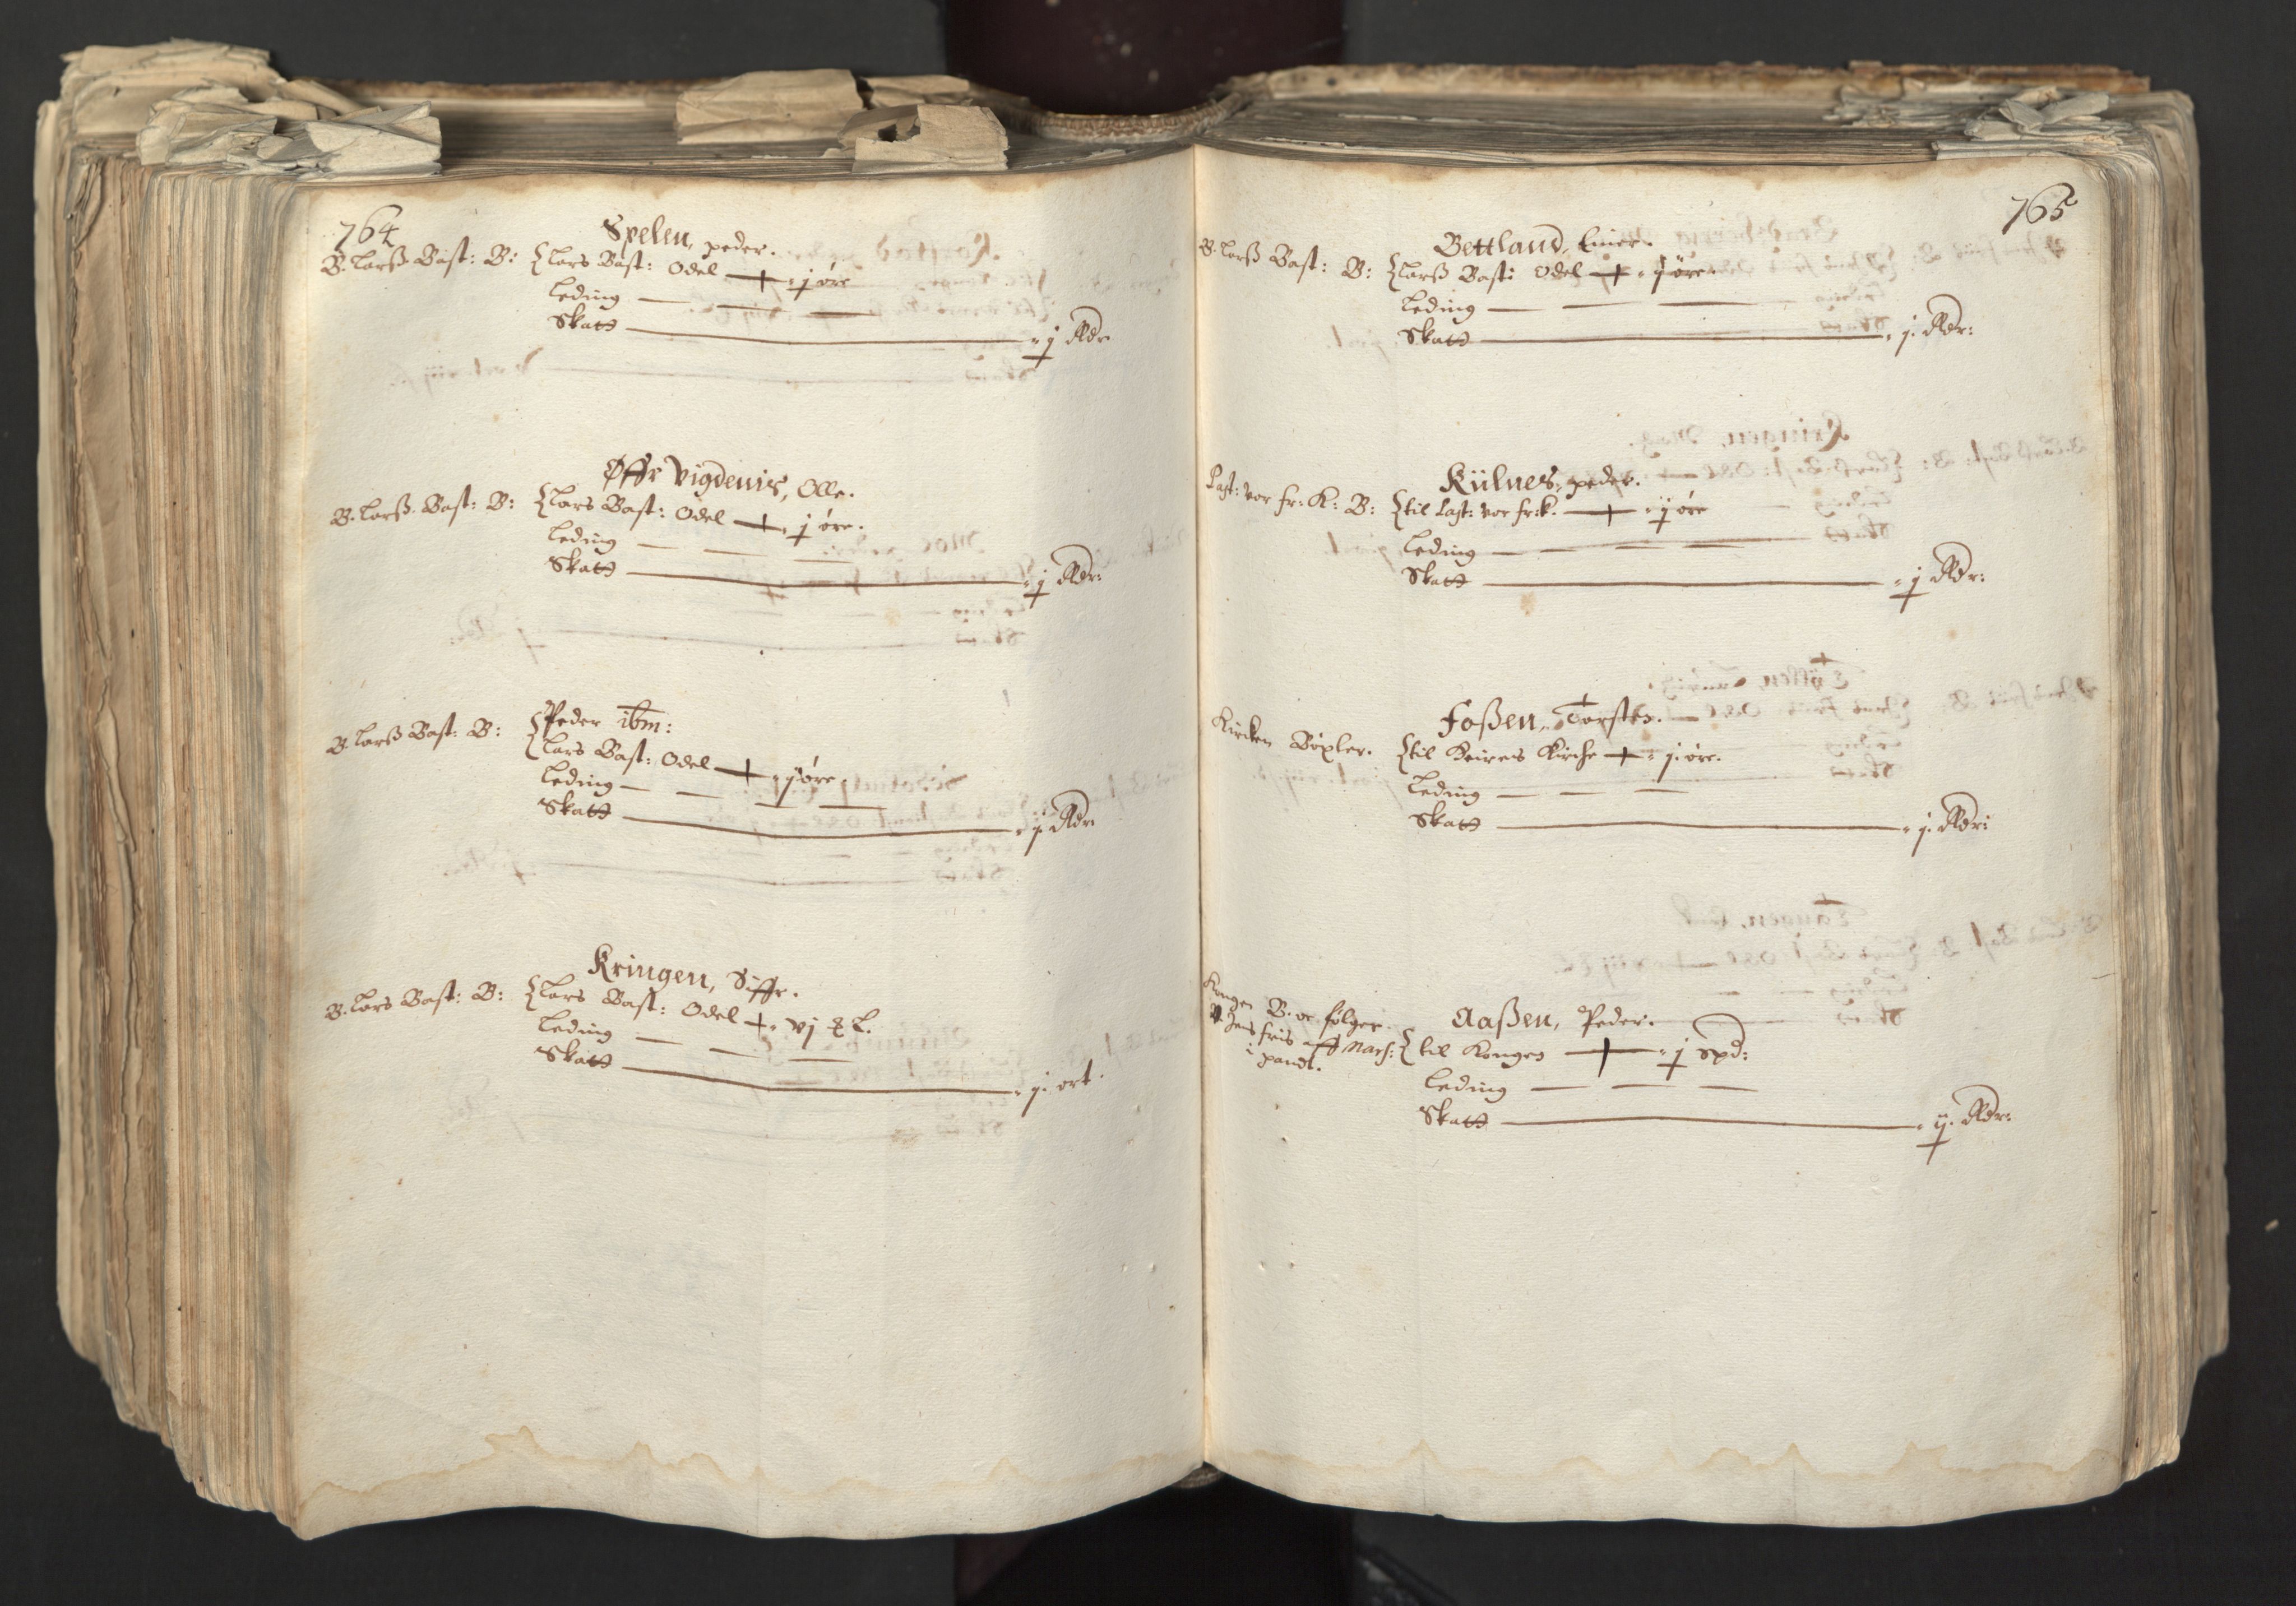 764
Spelen, peder.
B. Larß Bast: B: { Lars Bast: Odel + j øre
Leding
Skatt j Rdr
Øffr Vigdenis, Olle.
B. Larß. Bast: B: { Lars Bast: Odel + j øre.
Leding
Skatt j Rdr:
Peder ibm:
B. Larß Bast: B: { Lars Bast: Odel + ij øre
Leding
Skatt j. Rdr
Kringen, Siffr.
B. Lars Bast: B: { Lars Bast: Odel + vj L.
Leding
Skatt j. ort.
765
Bettland, Einer.
B. Larß Bast: B: { Larß Bast: Odel + ij øre.
Leding
Skatt j. Rdr:
Külnes, peder.
Last: vor fr: K: B: { til Last: vor fr: k. + ij øre
Leding
Skatt j Rdr:
Foßen, Torsten.
Kircken Böxler. { til Kirche + j. øre.
Leding
Skatt j. Rdr:
Aaßen, Peder.
Kongen B. oc følger
Jens friis aff Mars:
i pandt. { til Kongen + j Spd:
Leding
Skatt ij. Rdr: